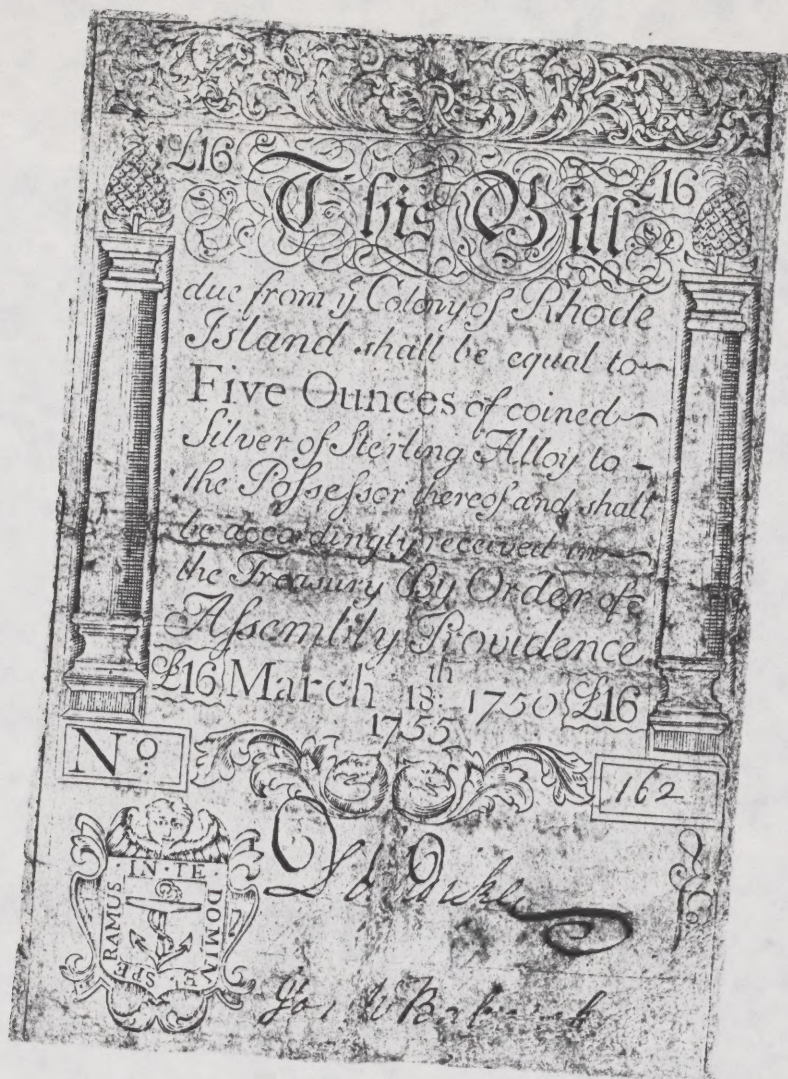 £16 £16
This Bill
due from yͤ Colony of Rhode
Island shall be equal to
Five Ounces of coined
Silver of Sterling Alloy to
the Poſseſsor thereof and shall
be accordingly received in
the Treasury By Order of
Aſsembly Providence
£16 March 18:ᵗʰ 1750 £16
1755
Nº 162
IN · TE · DOMINE SPERAMUS